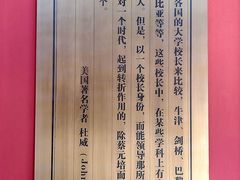 各国的大学校长来比较 牛津 剑桥、巴黎
比亚等等，这些校长中，在某些学科上有
人，但是，以一个校长身份，而能领导那所
对一个时代，起到转折作用的，除蔡元培而
个。
美国著名学者 杜威（John